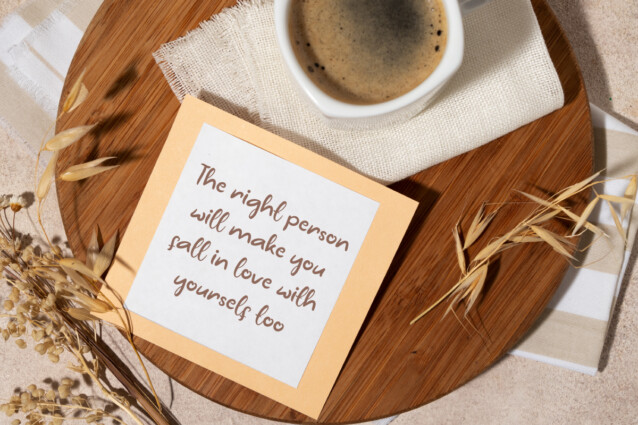 The right person
will make you
fall in love with
yourself too